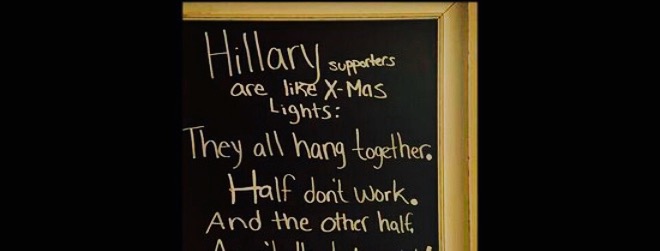 Hillary supporters
are like X-Mas
Lights:
They all hang together.
Half don't work.
And the other half,